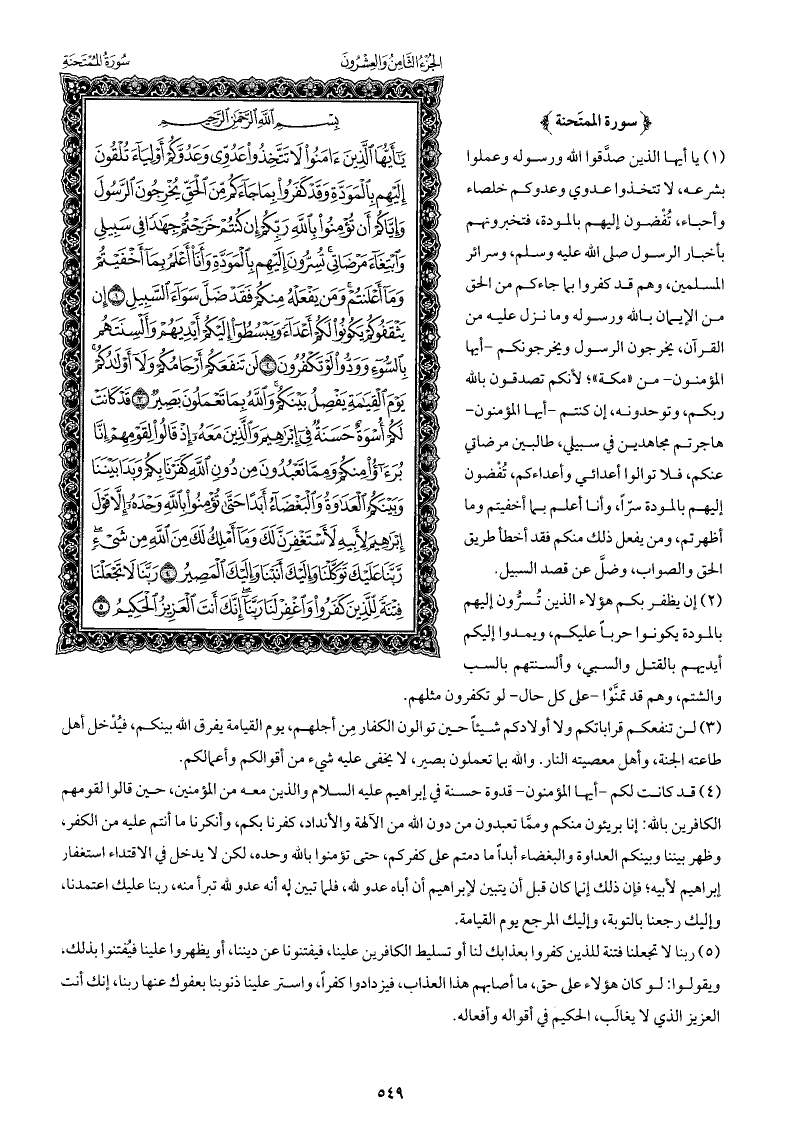 الجُزءُ الثَّامِنُ وَالعِشْرُونَ
سُورَةُ المُمْتَحنَةِ
بِسْمِ ٱللَّهِ ٱلرَّحْمَٰنِ ٱلرَّحِيمِ
يَٰٓأَيُّهَا ٱلَّذِينَ ءَامَنُوا۟ لَا تَتَّخِذُوا۟ عَدُوِّى وَعَدُوَّكُمْ أَوْلِيَآءَ تُلْقُونَ
إِلَيْهِم بِٱلْمَوَدَّةِ وَقَدْ كَفَرُوا۟ بِمَا جَآءَكُم مِّنَ ٱلْحَقِّ يُخْرِجُونَ ٱلرَّسُولَ
وَإِيَّاكُمْ أَن تُؤْمِنُوا۟ بِٱللَّهِ رَبِّكُمْ إِن كُنتُمْ خَرَجْتُمْ جِهَٰدًا فِى سَبِيلِى
وَٱبْتِغَآءَ مَرْضَاتِى تُسِرُّونَ إِلَيْهِم بِٱلْمَوَدَّةِ وَأَنَا۠ أَعْلَمُ بِمَآ أَخْفَيْتُمْ
وَمَآ أَعْلَنتُمْ وَمَن يَفْعَلْهُ مِنكُمْ فَقَدْ ضَلَّ سَوَآءَ ٱلسَّبِيلِ ١ إِن
يَثْقَفُوكُمْ يَكُونُوا۟ لَكُمْ أَعْدَآءً وَيَبْسُطُوٓا۟ إِلَيْكُمْ أَيْدِيَهُمْ وَأَلْسِنَتَهُم
بِٱلسُّوٓءِ وَوَدُّوا۟ لَوْ تَكْفُرُونَ ٢ لَن تَنفَعَكُمْ أَرْحَامُكُمْ وَلَآ أَوْلَٰدُكُمْ
يَوْمَ ٱلْقِيَٰمَةِ يَفْصِلُ بَيْنَكُمْ وَٱللَّهُ بِمَا تَعْمَلُونَ بَصِيرٌ ٣ قَدْ كَانَتْ
لَكُمْ أُسْوَةٌ حَسَنَةٌ فِىٓ إِبْرَٰهِيمَ وَٱلَّذِينَ مَعَهُۥٓ إِذْ قَالُوا۟ لِقَوْمِهِمْ إِنَّا
بُرَءَٰٓؤُا۟ مِنكُمْ وَمِمَّا تَعْبُدُونَ مِن دُونِ ٱللَّهِ كَفَرْنَا بِكُمْ وَبَدَا بَيْنَنَا
وَبَيْنَكُمُ ٱلْعَدَٰوَةُ وَٱلْبَغْضَآءُ أَبَدًا حَتَّىٰ تُؤْمِنُوا۟ بِٱللَّهِ وَحْدَهُۥٓ إِلَّا قَوْلَ
إِبْرَٰهِيمَ لِأَبِيهِ لَأَسْتَغْفِرَنَّ لَكَ وَمَآ أَمْلِكُ لَكَ مِنَ ٱللَّهِ مِن شَىْءٍ
رَّبَّنَا عَلَيْكَ تَوَكَّلْنَا وَإِلَيْكَ أَنَبْنَا وَإِلَيْكَ ٱلْمَصِيرُ ٤ رَبَّنَا لَا تَجْعَلْنَا
فِتْنَةً لِّلَّذِينَ كَفَرُوا۟ وَٱغْفِرْ لَنَا رَبَّنَآ إِنَّكَ أَنتَ ٱلْعَزِيزُ ٱلْحَكِيمُ ٥
﴿ سورة الممتَحنة ﴾
(١) يا أيها الذين صدَّقوا الله ورسوله وعملوا
بشرعه، لا تتخذوا عدوي وعدوكم خلصاء
وأحباء، تُفْضون إليهم بالمودة، فتخبرونهم
بأخبار الرسول صلى الله عليه وسلم، وسرائر
المسلمين، وهم قد كفروا بما جاءكم من الحق
من الإيمان بالله ورسوله وما نزل عليه من
القرآن، يخرجون الرسول ويخرجونكم -أيها
المؤمنون- من «مكة»؛ لأنكم تصدقون بالله
ربكم، وتوحدونه، إن كنتم -أيها المؤمنون-
هاجرتم مجاهدين في سبيلي، طالبين مرضاتي
عنكم، فلا توالوا أعدائي وأعداءكم، تُفْضون
إليهم بالمودة سرّاً، وأنا أعلم بما أخفيتم وما
أظهرتم، ومن يفعل ذلك منكم فقد أخطأ طريق
الحق والصواب، وضلَّ عن قصد السبيل.
(٢) إن يظفر بكم هؤلاء الذين تُسرُّون إليهم
بالمودة يكونوا حرباً عليكم، ويمدوا إليكم
أيديهم بالقتل والسبي، وألسنتهم بالسب
والشتم، وهم قد تمنَّوْا -على كل حال- لو تكفرون مثلهم.
(٣) لن تنفعكم قراباتكم ولا أولادكم شيئاً حين توالون الكفار مِن أجلهم، يوم القيامة يفرق الله بينكم، فيُدْخل أهل
طاعته الجنة، وأهل معصيته النار. والله بما تعملون بصير، لا يخفى عليه شيء من أقوالكم وأعمالكم.
(٤) قد كانت لكم -أيها المؤمنون- قدوة حسنة في إبراهيم عليه السلام والذين معه من المؤمنين، حين قالوا لقومهم
الكافرين بالله: إنا بريئون منكم وممَّا تعبدون من دون الله من الآلهة والأنداد، كفرنا بكم، وأنكرنا ما أنتم عليه من الكفر،
وظهر بيننا وبينكم العداوة والبغضاء أبداً ما دمتم على كفركم، حتى تؤمنوا بالله وحده، لكن لا يدخل في الاقتداء استغفار
إبراهيم لأبيه؛ فإن ذلك إنما كان قبل أن يتبين لإبراهيم أن أباه عدو لله، فلما تبين له أنه عدو لله تبرأ منه، ربنا عليك اعتمدنا،
وإليك رجعنا بالتوبة، وإليك المرجع يوم القيامة.
(٥) ربنا لا تجعلنا فتنة للذين كفروا بعذابك لنا أو تسليط الكافرين علينا، فيفتنونا عن ديننا، أو يظهروا علينا فيُفتنوا بذلك،
ويقولوا: لو كان هؤلاء على حق، ما أصابهم هذا العذاب، فيزدادوا كفراً، واستر علينا ذنوبنا بعفوك عنها ربنا، إنك أنت
العزيز الذي لا يغالَب، الحكيم في أقواله وأفعاله.
٥٤٩